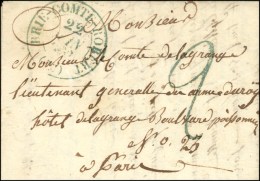 BRIE-COMTE-ROBERT
22
Monsieur
Monsieur le Comte delagrange
lieutenant generalle des armee du roy
hôtel delagrange Boulvard poisonniere
No. 23
à Paris
2